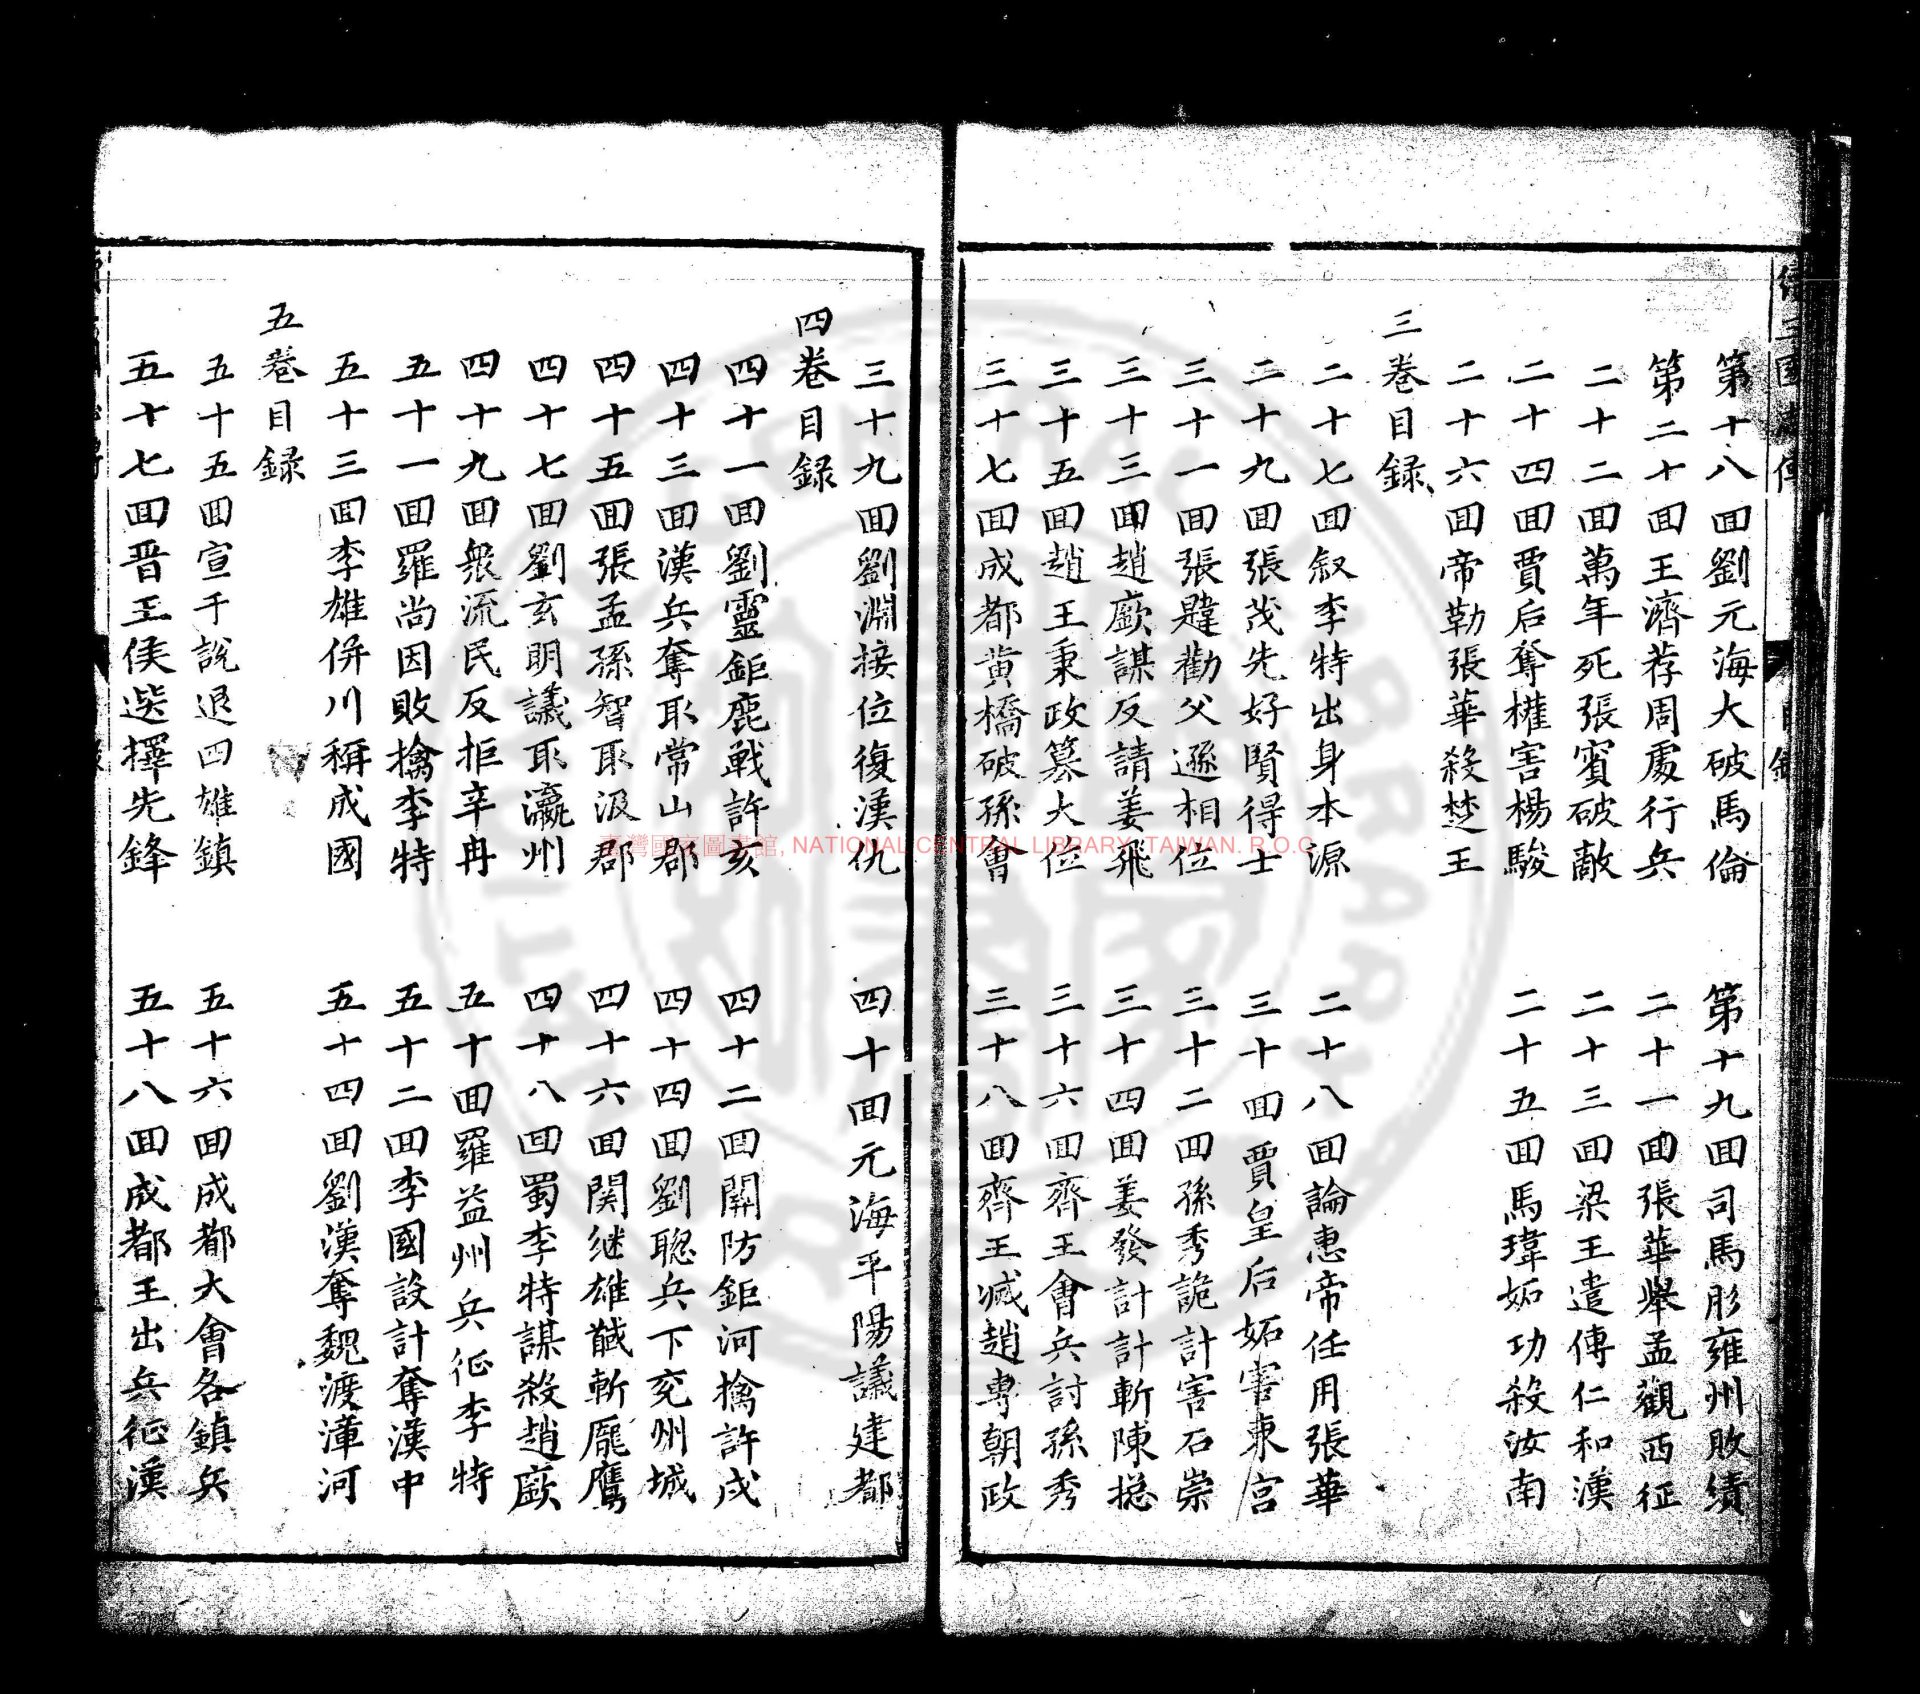 第十八回劉元海大破馬倫
第十九回司馬肜雍州敗績
第二十回王濟荐周處行兵
二十一回張華舉孟觀西征
二十二回萬年死張賓破敵
二十三回梁王遣傅仁和漢
二十四回賈后奪權害楊駿
二十五回馬瑋妬功殺汝南
二十六回帝勒張華殺楚王
三卷目録
二十七回叙李特出身本源
二十八回論惠帝任用張華
二十九回張茂先好賢得士
三十回賈皇后妬害東宮
三十一回張韙勸父遜相位
三十二回孫秀詭計害石崇
三十三回趙廞謀反請姜飛
三十四回姜發計計斬陳揔
三十五回趙王秉政篡大位
三十六回齊王會兵討孫秀
三十七回成都黄橋破孫會
三十八回齊王滅趙專朝政
三十九回劉淵接位復漢仇
四十回元海平陽議建都
四卷目録
四十一回劉靈鉅鹿戰許亥
四十二回關防鉅河擒許戍
四十三回漢兵奪取常山郡
四十四回劉聰兵下兖州城
四十五回張孟孫智取汲郡
四十六回関継雄馘斬龐鷹
四十七回劉玄明議取瀛州
四十八回蜀李特謀殺趙廞
四十九回衆流民反拒辛冉
五十回羅益州兵征李特
五十一回羅尚因敗擒李特
五十二回李國設計奪漢中
五十三回李雄併川稱成國
五十四回劉漢奪魏渡漳河
五卷目録
五十五回宣于說退四雄鎮
五十六回成都大會各鎮兵
五十七回晋王侯選擇先鋒
五十八回成都王出兵征漢
臺灣國家圖書館, NATIONAL CENTRAL LIBRARY, TAIWAN. R.O.C.